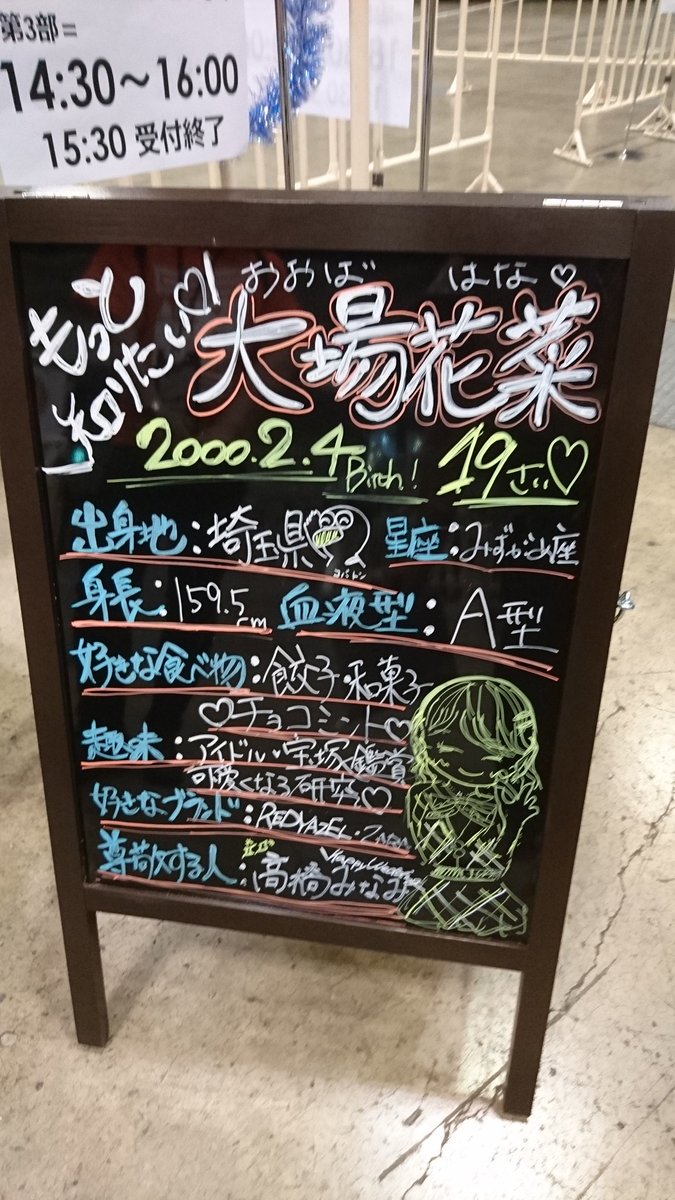 第3部=
14:30～16:00
15:30 受付終了
もっと
知りたい♡!
おおば はな♡
大場花菜
2000.2.4 Birth! 19さい♡
出身地:埼玉県
コバトン
星座:みずがめ座
身長:159.5cm
血液型:A型
好きな食べ物:餃子・和菓子
♡チョコミント♡
趣味:アイドル・宝塚鑑賞
可愛くなる研究♡
好きなブランド:REDYAZEL・ZARA
尊敬する人:高橋みなみ